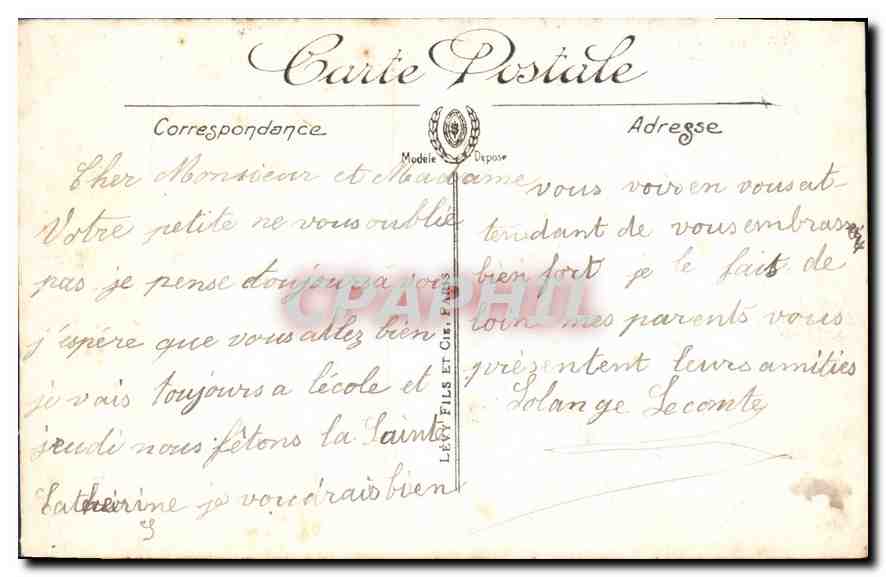 Carte Postale
Correspondance
Adresse
S
Modèle Déposé
Cher Monsieur et Madame
Votre petite ne vous oublie
pas je pense toujours à vous
j'espère que vous allez bien
je vais toujours a lécole et
jeudi nous fêtons la Sainte
Catherine je voudrais bien
LÉVY FILS ET CIE, PARIS
vous voir en vous at-
tendant de vous embrasser
bien fort je le fais de
loin mes parents vous
présentent leurs amities
Solange Lecomte
CPAPHIL